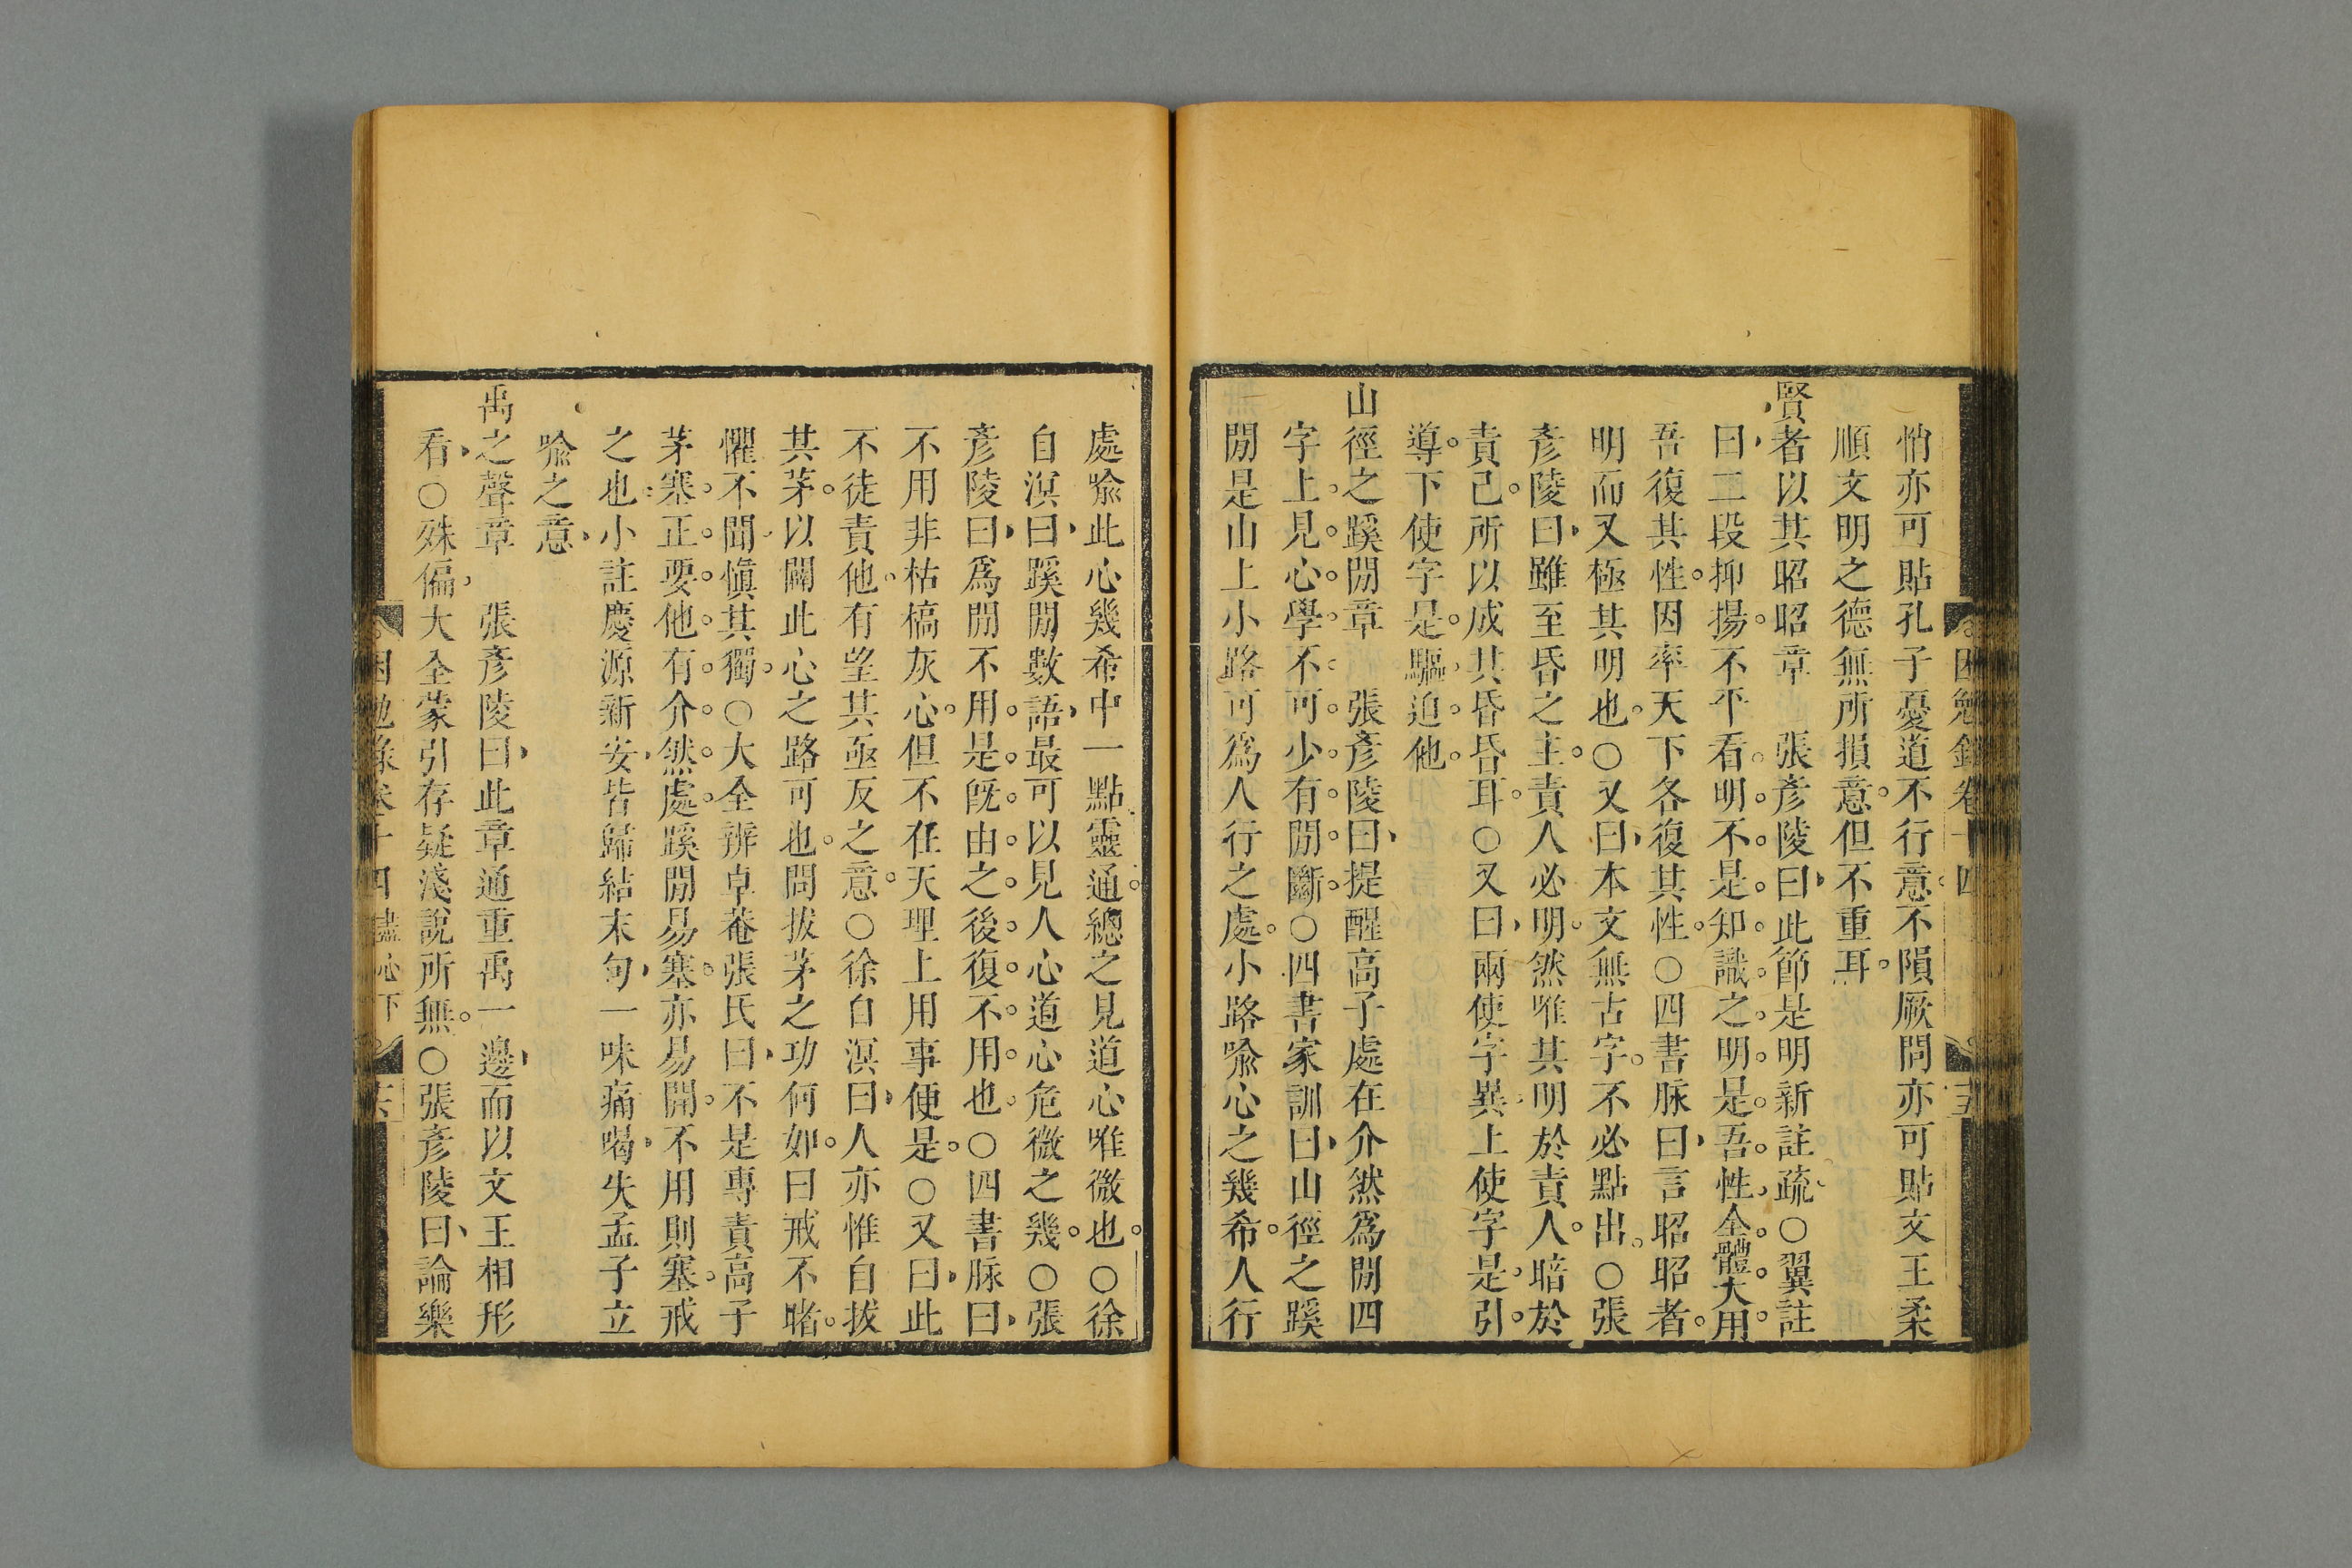 困勉錄卷十四
悄亦可貼孔子憂道不行意不隕厥問亦可貼文王柔
順文明之德無所損意但不重耳
賢者以其昭昭章　張彥陵曰此節是明新註疏○翼註
曰二段抑揚不平看明不是知識之明是吾性全體大用
吾復其性因率天下各復其性○四書脉曰言昭昭者
明而又極其明也○又曰本文無古字不必點出○張
彥陵曰雖至昏之主責人必明然唯其明於責人暗於
責己所以成其昏昏耳○又曰兩使字異上使字是引
導下使字是驅迫他
山徑之蹊閒章　張彥陵曰提醒高子處在介然爲閒四
字上見心學不可少有閒斷○四書家訓曰山徑之蹊
閒是山上小路可爲人行之處小路喩心之幾希人行
處喩此心幾希中一點靈通總之見道心唯微也○徐
自溟曰蹊閒數語最可以見人心道心危微之幾○張
彥陵曰爲閒不用是旣由之後復不用也○四書脉曰
不用非枯槁灰心但不在天理上用事便是○又曰此
不徒責他有望其亟反之意○徐自溟曰人亦惟自拔
其茅以闢此心之路可也問拔茅之功何如曰戒不睹
懼不聞愼其獨○大全辨卓菴張氏曰不是專責高子
茅塞正要他有介然處蹊閒易塞亦易開不用則塞戒
之也小註慶源新安皆歸結末句一味痛喝失孟子立
喩之意
禹之聲章　張彥陵曰此章通重禹一邊而以文王相形
看○殊偏大全蒙引存疑淺說所無○張彥陵曰論樂
困勉錄卷十四盡心下